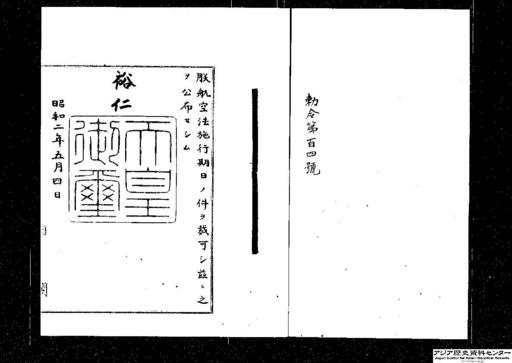 勅令第百四號
朕航空法施行期日ノ件ヲ裁可シ茲ニ之
ヲ公布セシム
裕仁
天皇御璽
昭和二年五月四日
内閣
アジア歴史資料センター
Japan Center for Asian Historical Records